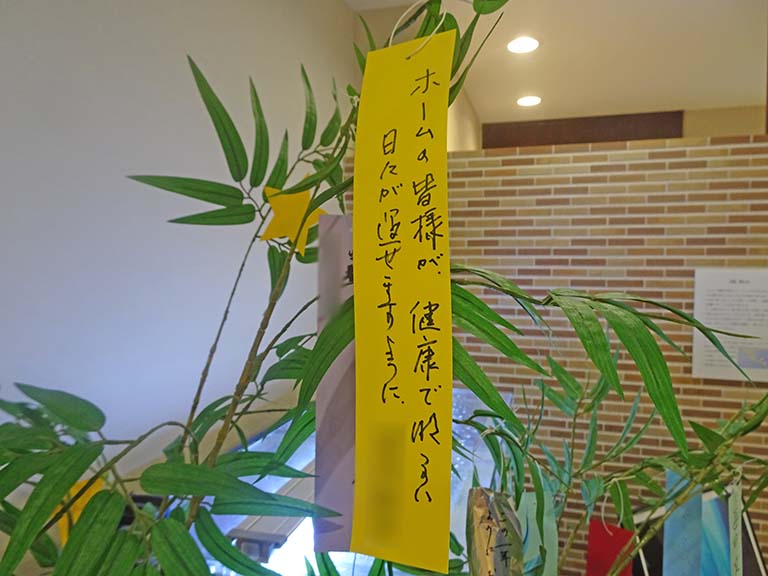 ホームの皆様が、健康で明るい
日々が過せますように、